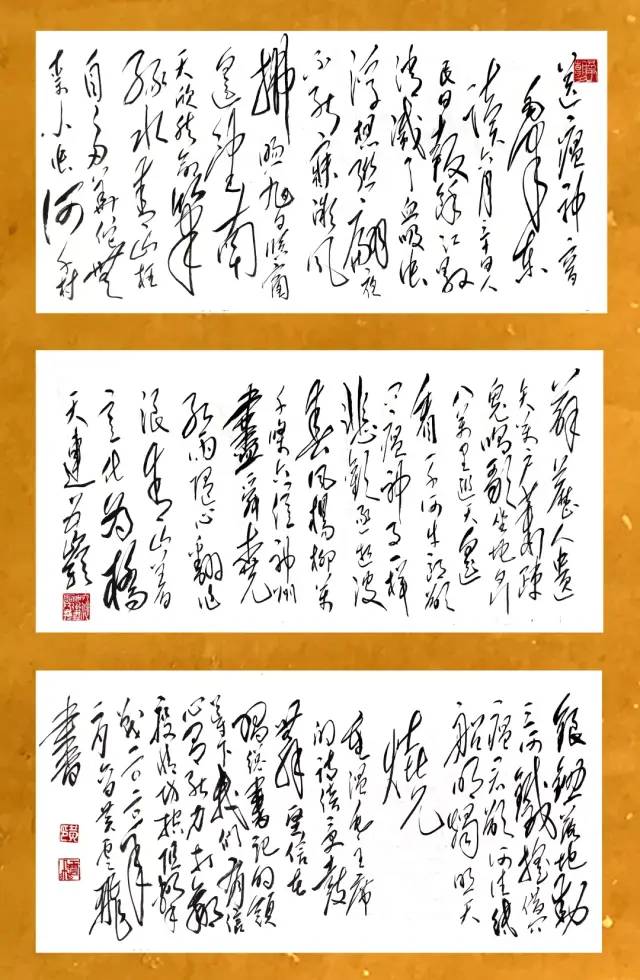 送瘟神二首
毛泽东
读六月三十日人
民日报余江县
消灭了血吸虫
浮想联翩夜
不能寐微风
拂煦旭日临窗
遥望南
天欣然命笔
绿水青山枉
自多华佗无
奈小虫何千村
薜荔人遗
矢万户萧疏
鬼唱歌坐地日行
八万里巡天遥
看一千河牛郎欲
问瘟神事一样
悲欢逐逝波
春风杨柳万
千条六亿神州
尽舜尧
红雨随心翻作
浪青山着
意化为桥
天连五岭
银锄落地动
三河铁臂摇借问
瘟君欲何往纸
船明烛照天
烧
重温毛主席
的诗倍受鼓
舞坚信在
总书记的领
导下我们有信
心有能力打赢
疫情防控阻击
战二〇二〇年
二月
书